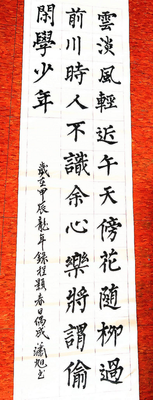 雲淡風輕近午天傍花随柳過
前川時人不識余心樂將謂偷
閑學少年
歲在甲辰龍年錄程顥春日偶成瀟旭書